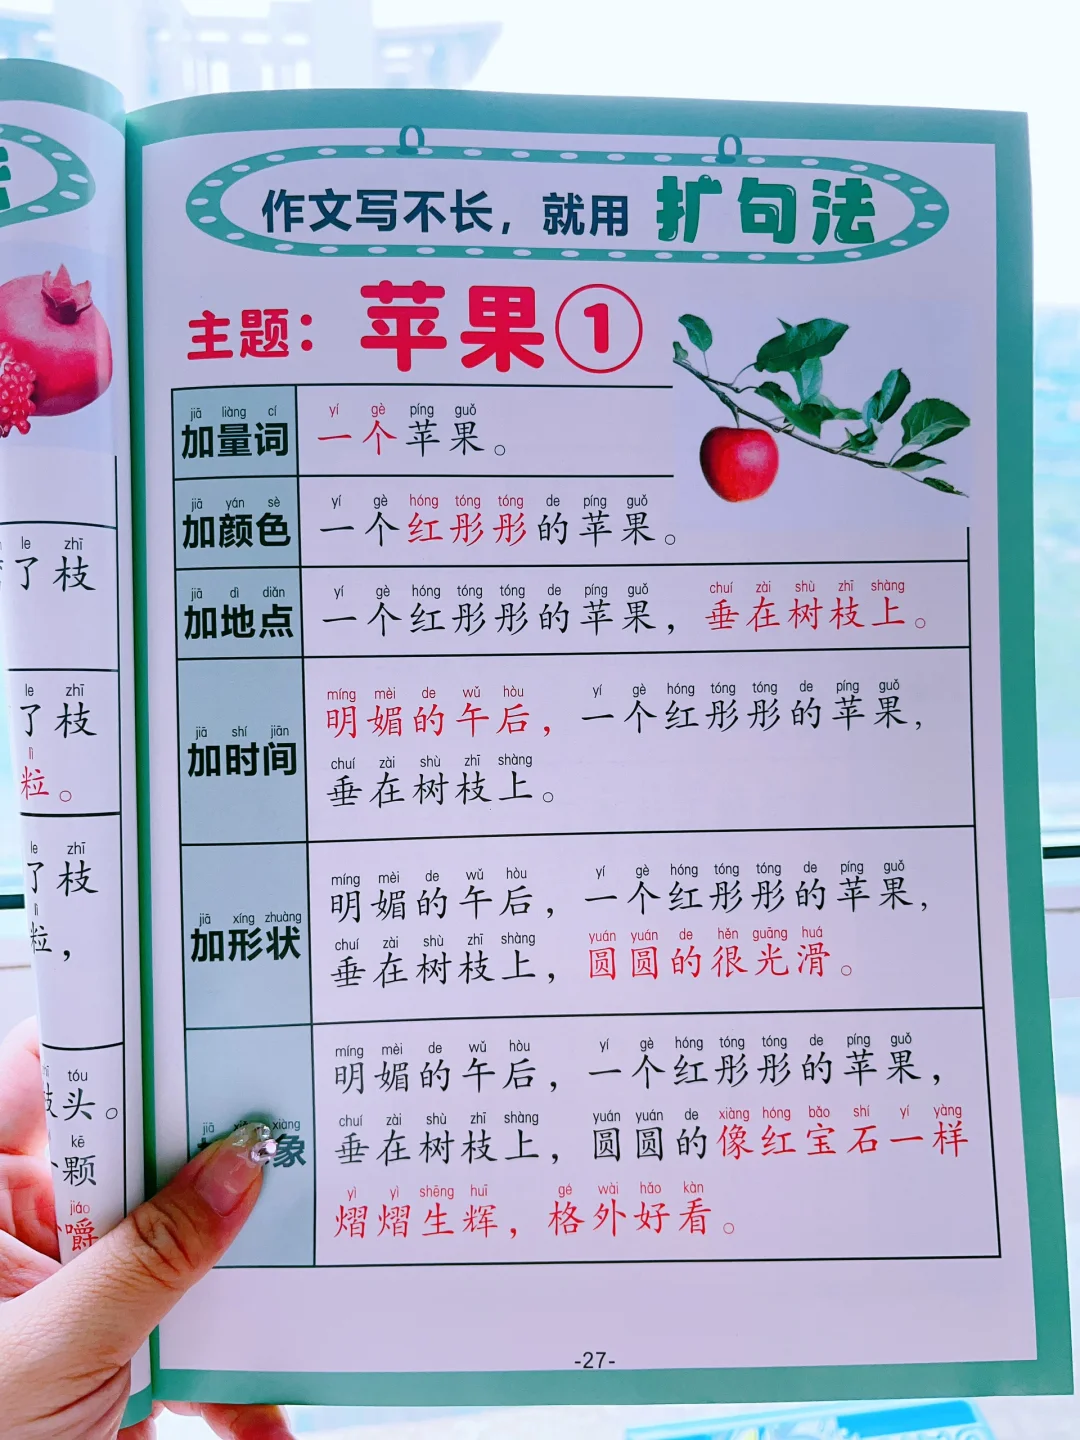 作文写不长，就用 扩句法
主题：苹果①
jiā liàng cí
加量词
yí gè píng guǒ
一个苹果。
jiā yán sè
加颜色
yí gè hóng tóng tóng de píng guǒ
一个红彤彤的苹果。
jiā dì diǎn
加地点
yí gè hóng tóng tóng de píng guǒ chuí zài shù zhī shàng
一个红彤彤的苹果，垂在树枝上。
jiā shí jiān
加时间
míng mèi de wǔ hòu yí gè hóng tóng tóng de píng guǒ
明媚的午后，一个红彤彤的苹果，
chuí zài shù zhī shàng
垂在树枝上。
jiā xíng zhuàng
加形状
míng mèi de wǔ hòu yí gè hóng tóng tóng de píng guǒ
明媚的午后，一个红彤彤的苹果，
chuí zài shù zhī shàng yuán yuán de hěn guāng huá
垂在树枝上，圆圆的很光滑。
jiā xiàng
象
míng mèi de wǔ hòu yí gè hóng tóng tóng de píng guǒ
明媚的午后，一个红彤彤的苹果，
chuí zài shù zhī shàng yuán yuán de xiàng hóng bǎo shí yí yàng
垂在树枝上，圆圆的像红宝石一样
yì yì shēng huī gé wài hǎo kàn
熠熠生辉，格外好看。
-27-
le zhī
了枝
le zhī
了枝
lì
粒。
le zhī
了枝
lì
粒，
tóu
头。
kē
颗
jiáo
嚼